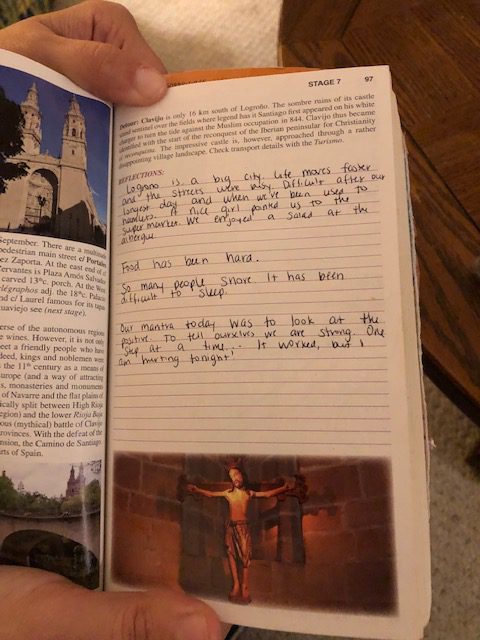 STAGE 7 97
Detour: Clavijo is only 16 km south of Logroño. The sombre ruins of its castle
stand sentinel over the fields where legend has it Santiago first appeared on his white
charger to turn the tide against the Muslim occupation in 844. Clavijo thus became
identified with the start of the reconquest of the Iberian peninsular for Christianity
la reconquista. The impressive castle is, however, approached through a rather
disappointing village landscape. Check transport details with the Turismo.
REFLECTIONS:
Logrono is a big city. Life moves faster
and the streets were busy. Difficult after our
longest day and when we've been used to
hamlets. A nice girl pointed us to the
super market. We enjoyed a salad at the
albergue.
Food has been hard.
So many people snore. It has been
difficult to sleep.
Our mantra today was to look at the
positive. To tell ourselves we are strong. One
step at a time... It worked, but I
am hurting tonight!
September. There are a
pedestrian main street c/
ez Zaporta. At the east end of
ervantes is Plaza Amós Salvador
carved 13thc. porch. At the West
elégrafos adj. the 18thc. Palacio
d c/ Laurel famous for its tapas
uaviejo see (next stage).
erse of the autonomous region
e wines. However, it is not only
eet a friendly people who have
deed, kings and noblemen
the 11th century as a means of
urope (and a way of attracting
s, monasteries and monuments
of Navarre and the flat plains of
ically split between High Rioja
egion) and the lower Rioja Baja
ous (mythical) battle of Clavijo
rovinces. With the defeat of the
nsion, the Camino de Santiago
rts of Spain.